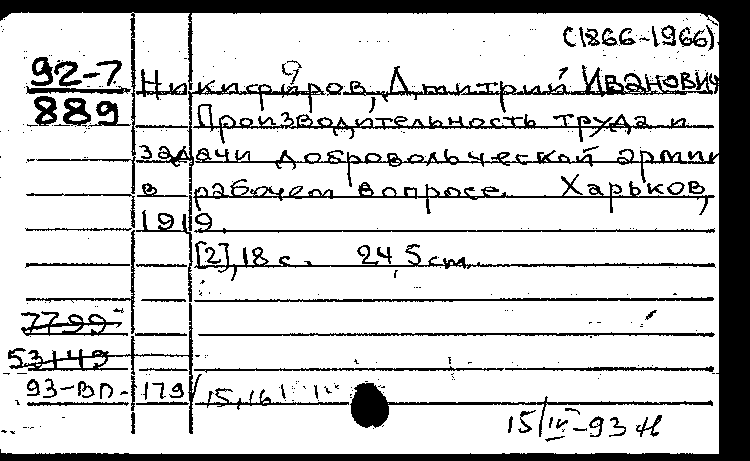 (1866-1966)
92-7 Никифоров, Дмитрий Иванович
889 Производительность труда и
задачи добровольческой армии
в рабочем вопросе. Харьков,
1919.
[2], 18 с. 24,5 cm.
7799
53149
93-ВП-179/15,16
15/IV-93